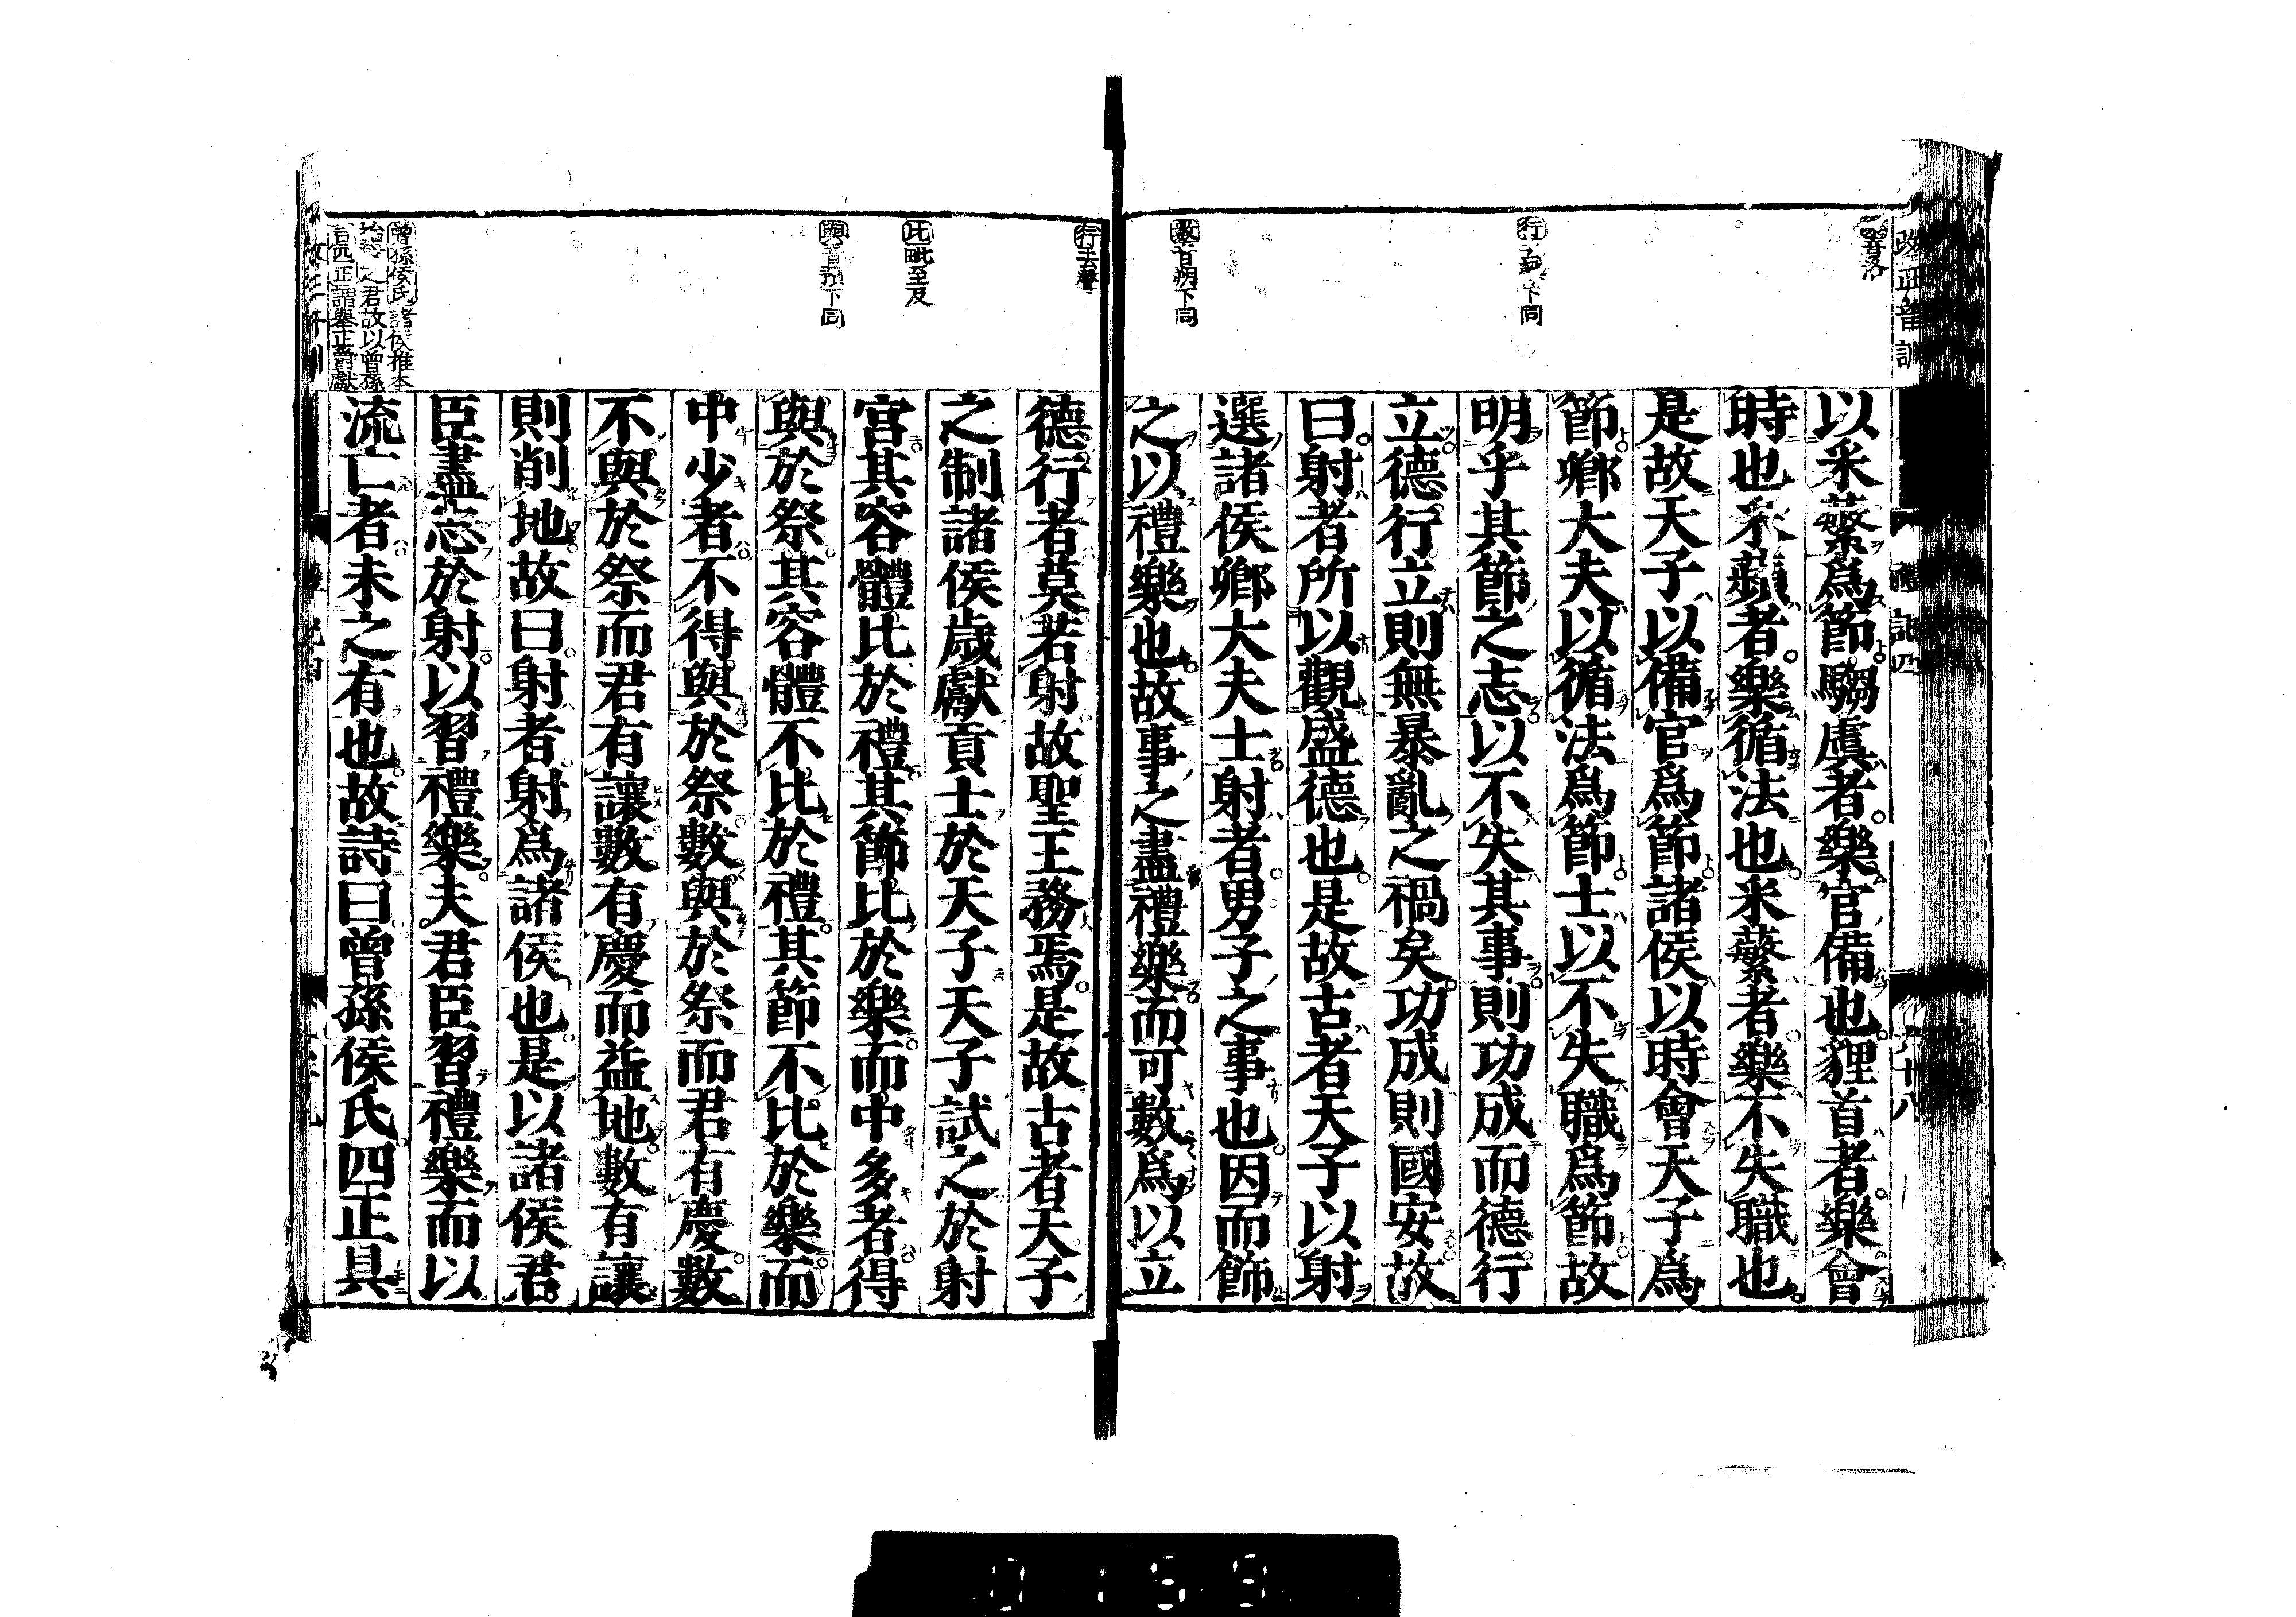 改正音訓
禮記四
八十八
音洛
行 下同
數音朔下同
以采蘩爲節騶虞者樂官備也貍首者樂會
時也采蘋者樂循法也采蘩者樂不失職也
是故天子以備官爲節諸侯以時會天子爲
節卿大夫以循法爲節士以不失職爲節故
明乎其節之志以不失其事則功成而德行
立德行立則無暴亂之禍矣功成則國安故
曰射者所以觀盛德也是故古者天子以射
選諸侯卿大夫士射者男子之事也因而飾
之以禮樂也故事之盡禮樂而可數爲以立
行去聲
比毗至反
與音預下同
曾孫侯氏諸侯推本
始封之君故以曾孫
言四正謂舉正爵獻
德行者莫若射故聖王務焉是故古者天子
之制諸侯歲獻貢士於天子天子試之於射
宮其容體比於禮其節比於樂而中多者得
與於祭其容體不比於禮其節不比於樂而
中少者不得與於祭數與於祭而君有慶數
不與於祭而君有讓數有慶而益地數有讓
則削地故曰射者射爲諸侯也是以諸侯君
臣盡志於射以習禮樂夫君臣習禮樂而以
流亡者未之有也故詩曰曾孫侯氏四正具